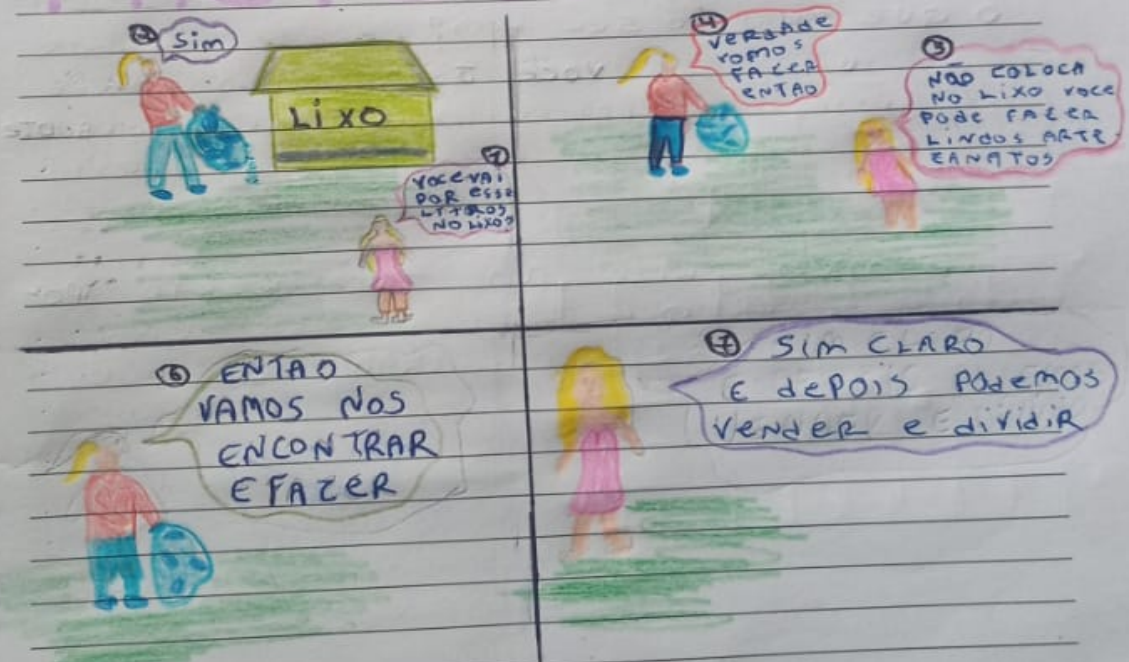 2
Sim
LIXO
1
VOCE VAI
POR ESSE
LITROS
NO LIXO?
4
VERDADE
VOMOS
FAZER
ENTAO
3
NÃO COLOCA
NO LIXO VOCE
PODE FAZER
LINDOS ARTE
ZANATOS
6
ENTAO
VAMOS NOS
ENCONTRAR
E FAZER
7
SIM CLARO
E dEPOIS PODEMOS
VENDER e dividiR